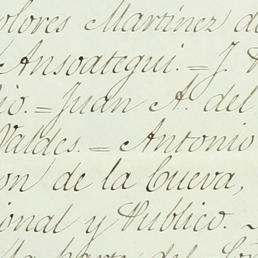 olores Martinez de
Ansoategui. = J.
io. = Juan A. del
Valdes. = Antonio
on de la Cueva,
ional y Publico. -
la parte del Se